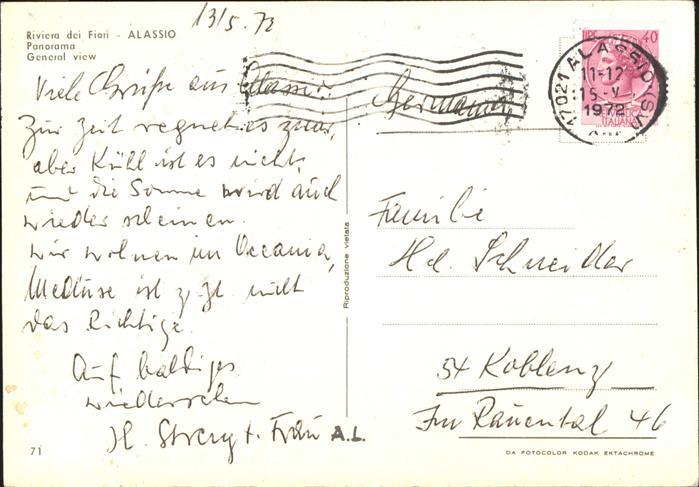 13/5.72
Riviera dei Fiori - ALASSIO
Panorama
General view
Viele Grüße aus Alassio.
Zur Zeit regnet es zwar,
aber Kühl ist es nicht
und die Sonne wird auch
wieder scheinen.
Wir wohnen im Oceania,
Meduse ist z. Zt nicht
das Richtige.
Auf baldiges
wiedersehen
H. + Frau
A.L.
71
Riproduzione vietata
40
ALASSIO (SV)
17021
11-12
15-V
1972
ITALIANE
Germania
Familie
Hd. Schneider
54 Koblenz
Im Rauental 46
DA FOTOCOLOR KODAK EKTACHROME